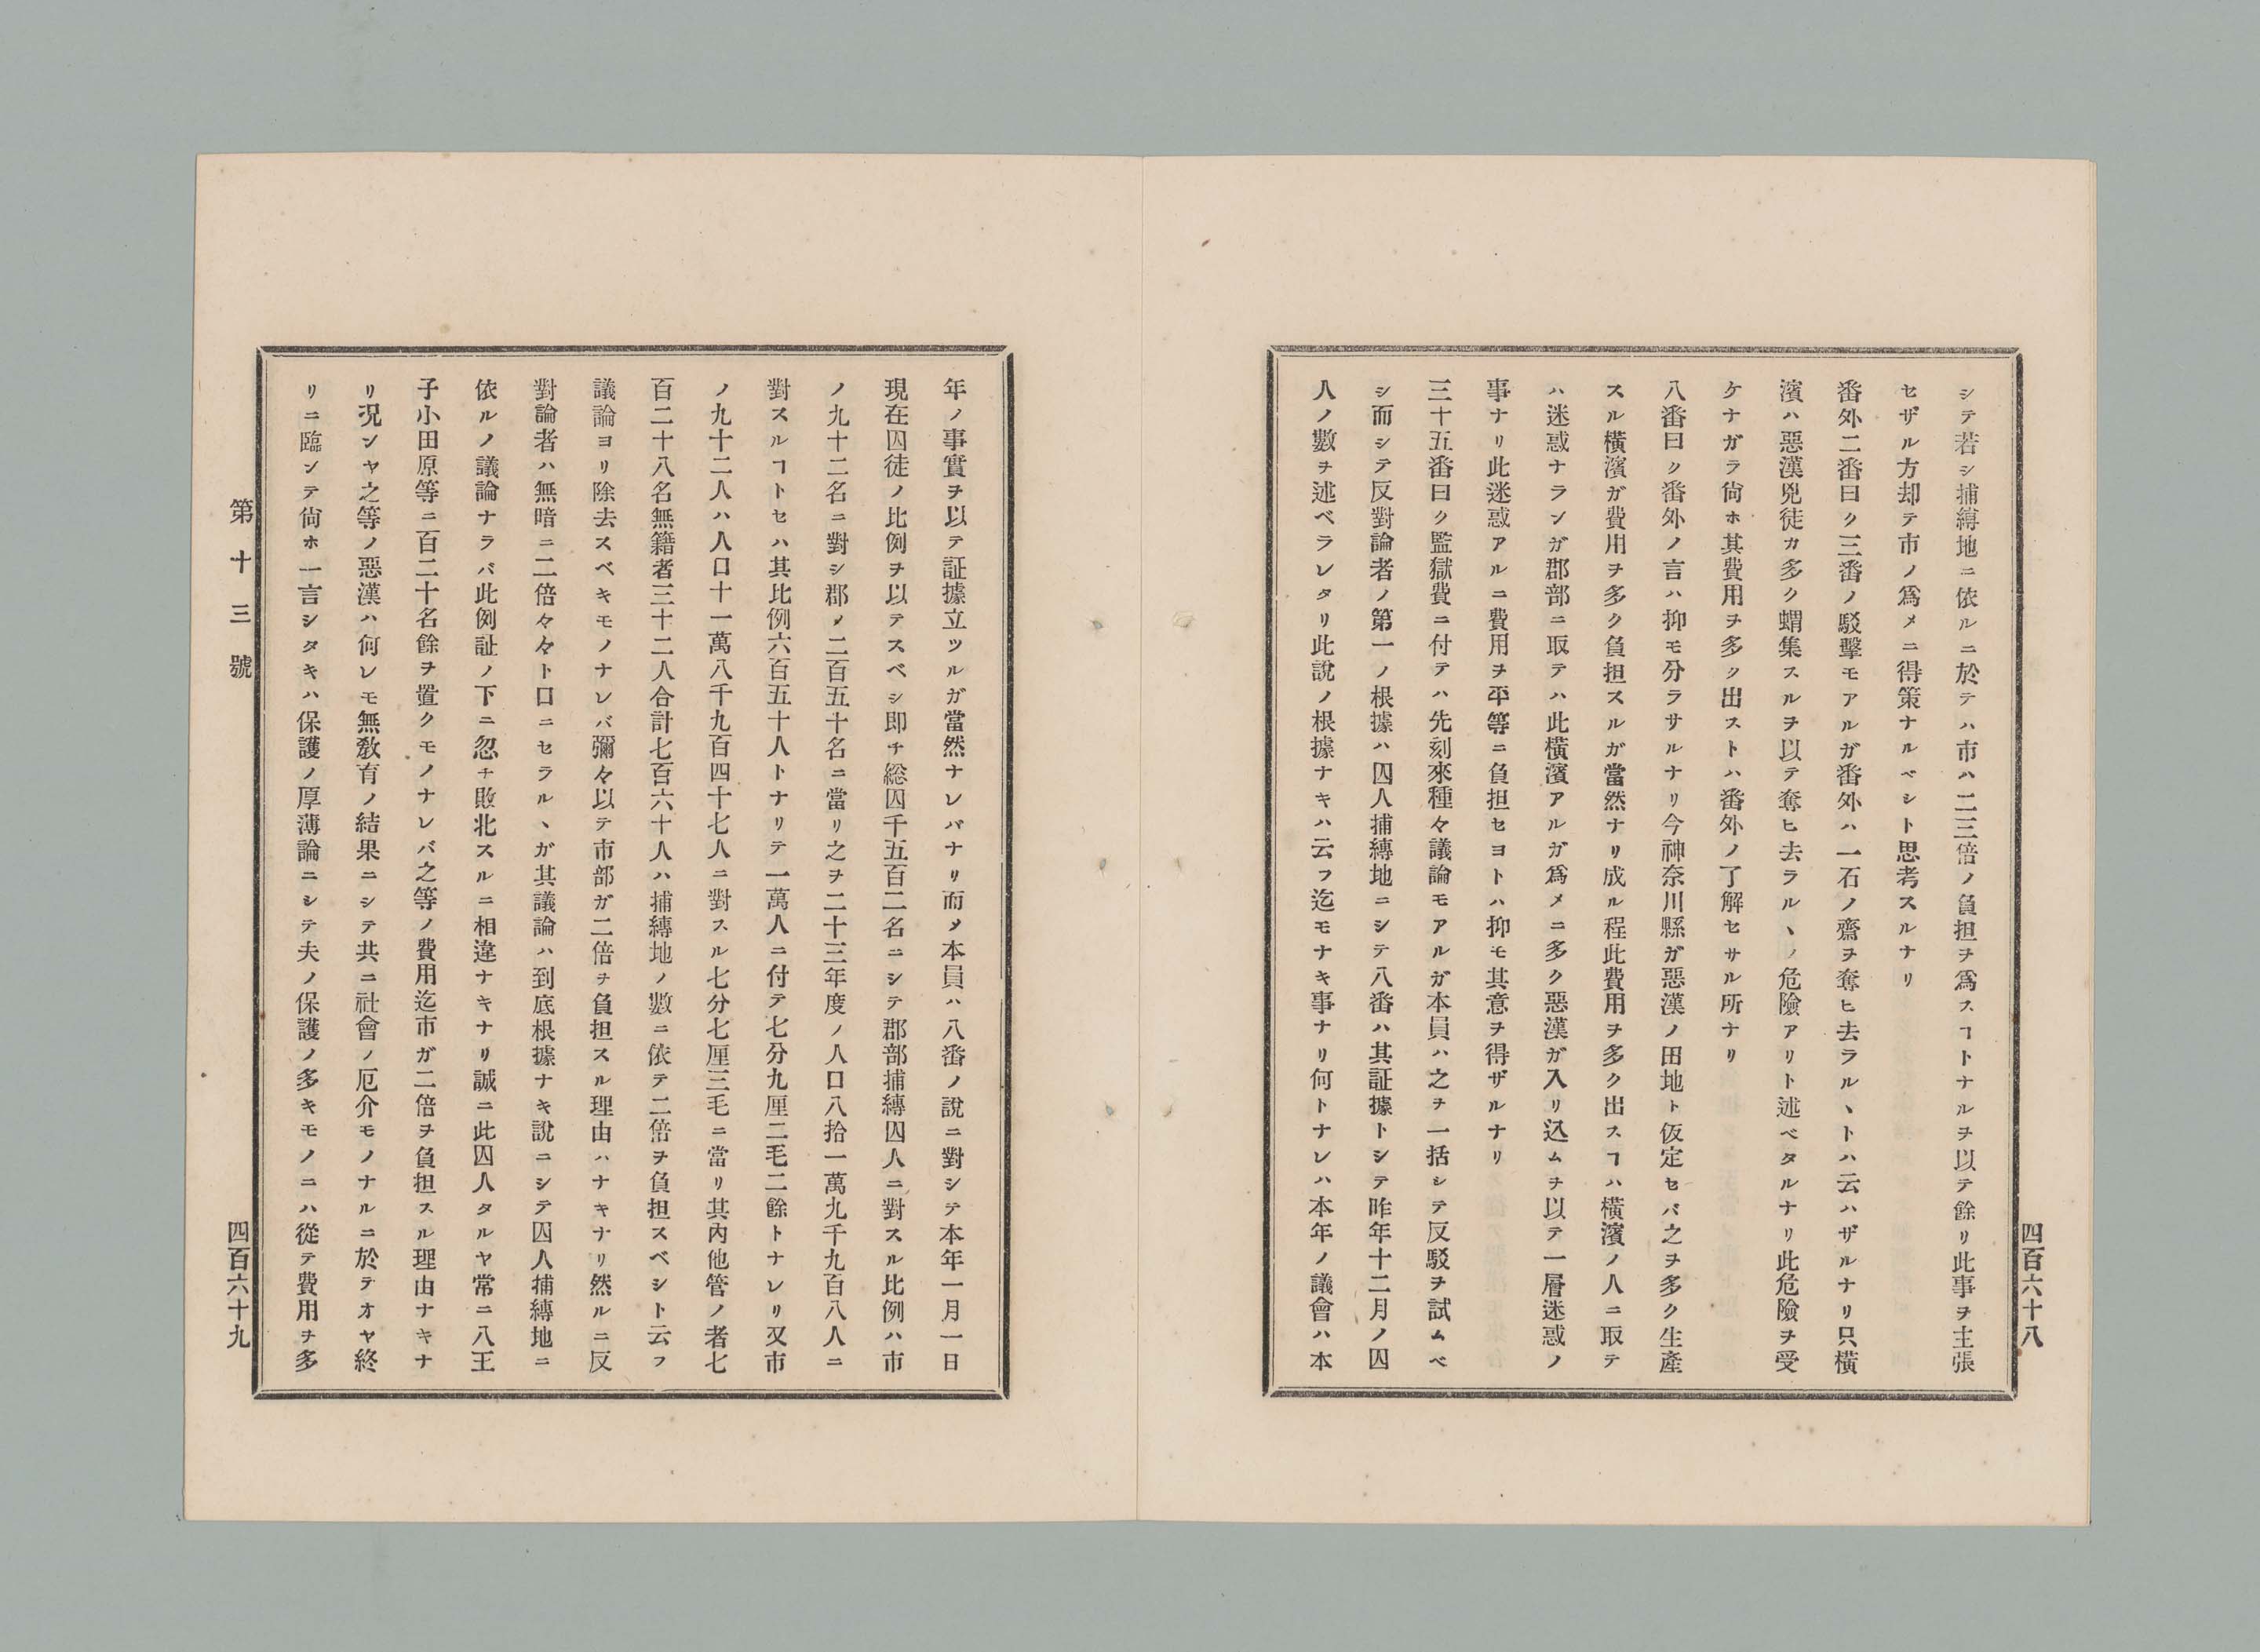 シテ若シ捕縛地ニ依ルニ於テハ市ハ二三倍ノ負担ヲ爲スヿトナルヲ以テ餘リ此事ヲ主張
セザル方却テ市ノ爲メニ得策ナルベシト思考スルナリ
番外二番曰ク三番ノ駁擊モアルガ番外ハ一石ノ齋ヲ奪ヒ去ラル、トハ云ハザルナリ只橫
濱ハ惡漢兇徒カ多ク蝟集スルヲ以テ奪ヒ去ラル、ノ危險アリト述ベタルナリ此危險ヲ受
ケナガラ尙ホ其費用ヲ多ク出ストハ番外ノ了解セサル所ナリ
八番曰ク番外ノ言ハ抑モ分ラサルナリ今神奈川縣ガ惡漢ノ田地ト仮定セバ之ヲ多ク生產
スル橫濱ガ費用ヲ多ク負担スルガ當然ナリ成ル程此費用ヲ多ク出スヿハ橫濱ノ人ニ取テ
ハ迷惑ナランガ郡部ニ取テハ此橫濱アルガ爲メニ多ク惡漢ガ入リ込ムヲ以テ一層迷惑ノ
事ナリ此迷惑アルニ費用ヲ平等ニ負担セヨトハ抑モ其意ヲ得ザルナリ
三十五番曰ク監獄費ニ付テハ先刻來種々議論モアルガ本員ハ之ヲ一括シテ反駁ヲ試ムベ
シ而シテ反對論者ノ第一ノ根據ハ囚人捕縛地ニシテ八番ハ其証據トシテ昨年十二月ノ囚
人ノ數ヲ述ベラレタリ此說ノ根據ナキハ云フ迄モナキ事ナリ何トナレハ本年ノ議會ハ本
四百六十八
年ノ事實ヲ以テ証據立ツルガ當然ナレバナリ而メ本員ハ八番ノ說ニ對シテ本年一月一日
現在囚徒ノ比例ヲ以テスベシ即チ総囚千五百二名ニシテ郡部捕縛囚人ニ對スル比例ハ市
ノ九十二名ニ對シ郡ノ二百五十名ニ當リ之ヲ二十三年度ノ人口八拾一萬九千九百八人ニ
對スルヿトセハ其比例六百五十人トナリテ一萬人ニ付テ七分九厘二毛二餘トナレリ又市
ノ九十二人ハ人口十一萬八千九百四十七人ニ對スル七分七厘三毛ニ當リ其內他管ノ者七
百二十八名無籍者三十二人合計七百六十人ハ捕縛地ノ數ニ依テ二倍ヲ負担スベシト云フ
議論ヨリ除去スベキモノナレバ彌々以テ市部ガ二倍ヲ負担スル理由ハナキナリ然ルニ反
對論者ハ無暗ニ二倍々々ト口ニセラル、ガ其議論ハ到底根據ナキ說ニシテ囚人捕縛地ニ
依ルノ議論ナラバ此例証ノ下ニ忽チ敗北スルニ相違ナキナリ誠ニ此囚人タルヤ常ニ八王
子小田原等ニ百二十名餘ヲ置クモノナレバ之等ノ費用迄市ガ二倍ヲ負担スル理由ナキナ
リ况ンヤ之等ノ惡漢ハ何レモ無敎育ノ結果ニシテ共ニ社會ノ厄介モノナルニ於テオヤ終
リニ臨ンテ尙ホ一言シタキハ保護ノ厚薄論ニシテ夫ノ保護ノ多キモノニハ從テ費用ヲ多
第十三號
四百六十九